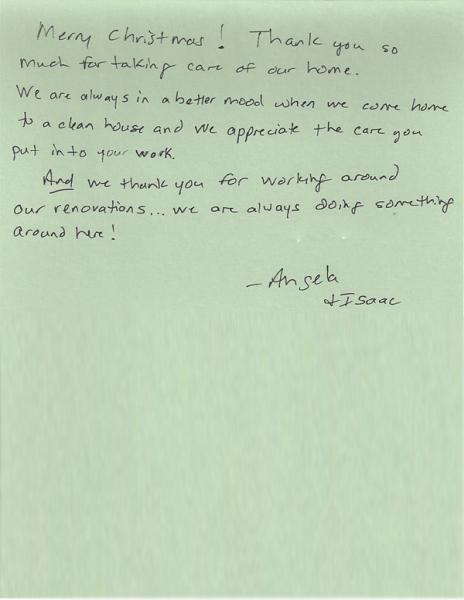 Merry Christmas! Thank you so
much for taking care of our home.
We are always in a better mood when we come home
to a clean house and we appreciate the care you
put into your work.
And we thank you for working around
our renovations... we are always doing something
around here!
- Angela
+ Isaac